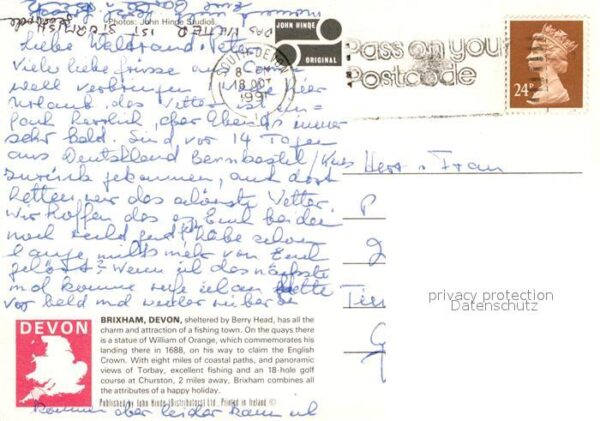 Photos: John Hinde Studios.
DAS
WETTER
IST
STÜRMISCH
JOHN HINDE
ORIGINAL
SOUTH DEVON
18 OCT
1991
Pass on your
Postcode
24P
Liebe Waltraud
Viele liebe Grüsse aus
wall verbringen wir
Urlaub, das Wetter ist ein-
fach herrlich, aber Abends immer
sehr kalt. Sind vor 14 Tagen
aus Deutschland Bernkastel/Kues
zurück gekommen, auch dort
hatten wir das schönste Wetter.
Wir hoffen das es Euch beiden
noch recht gut geht, habe schon
lange nichts mehr von Euch
gehört? Wenn ich das nächste
mal komme rufe ich an
vor bald mal wieder rüber zu
kommen aber leider kann ich
Herr u Frau
P
Tier
G
privacy protection
Datenschutz
DEVON
BRIXHAM, DEVON, sheltered by Berry Head, has all the
charm and attraction of a fishing town. On the quays there
is a statue of William of Orange, which commemorates his
landing there in 1688, on his way to claim the English
Crown. With eight miles of coastal paths, and panoramic
views of Torbay, excellent fishing and an 18-hole golf
course at Churston, 2 miles away, Brixham combines all
the attributes of a happy holiday.
Published by John Hinde (Distributors) Ltd., Printed in Ireland ©